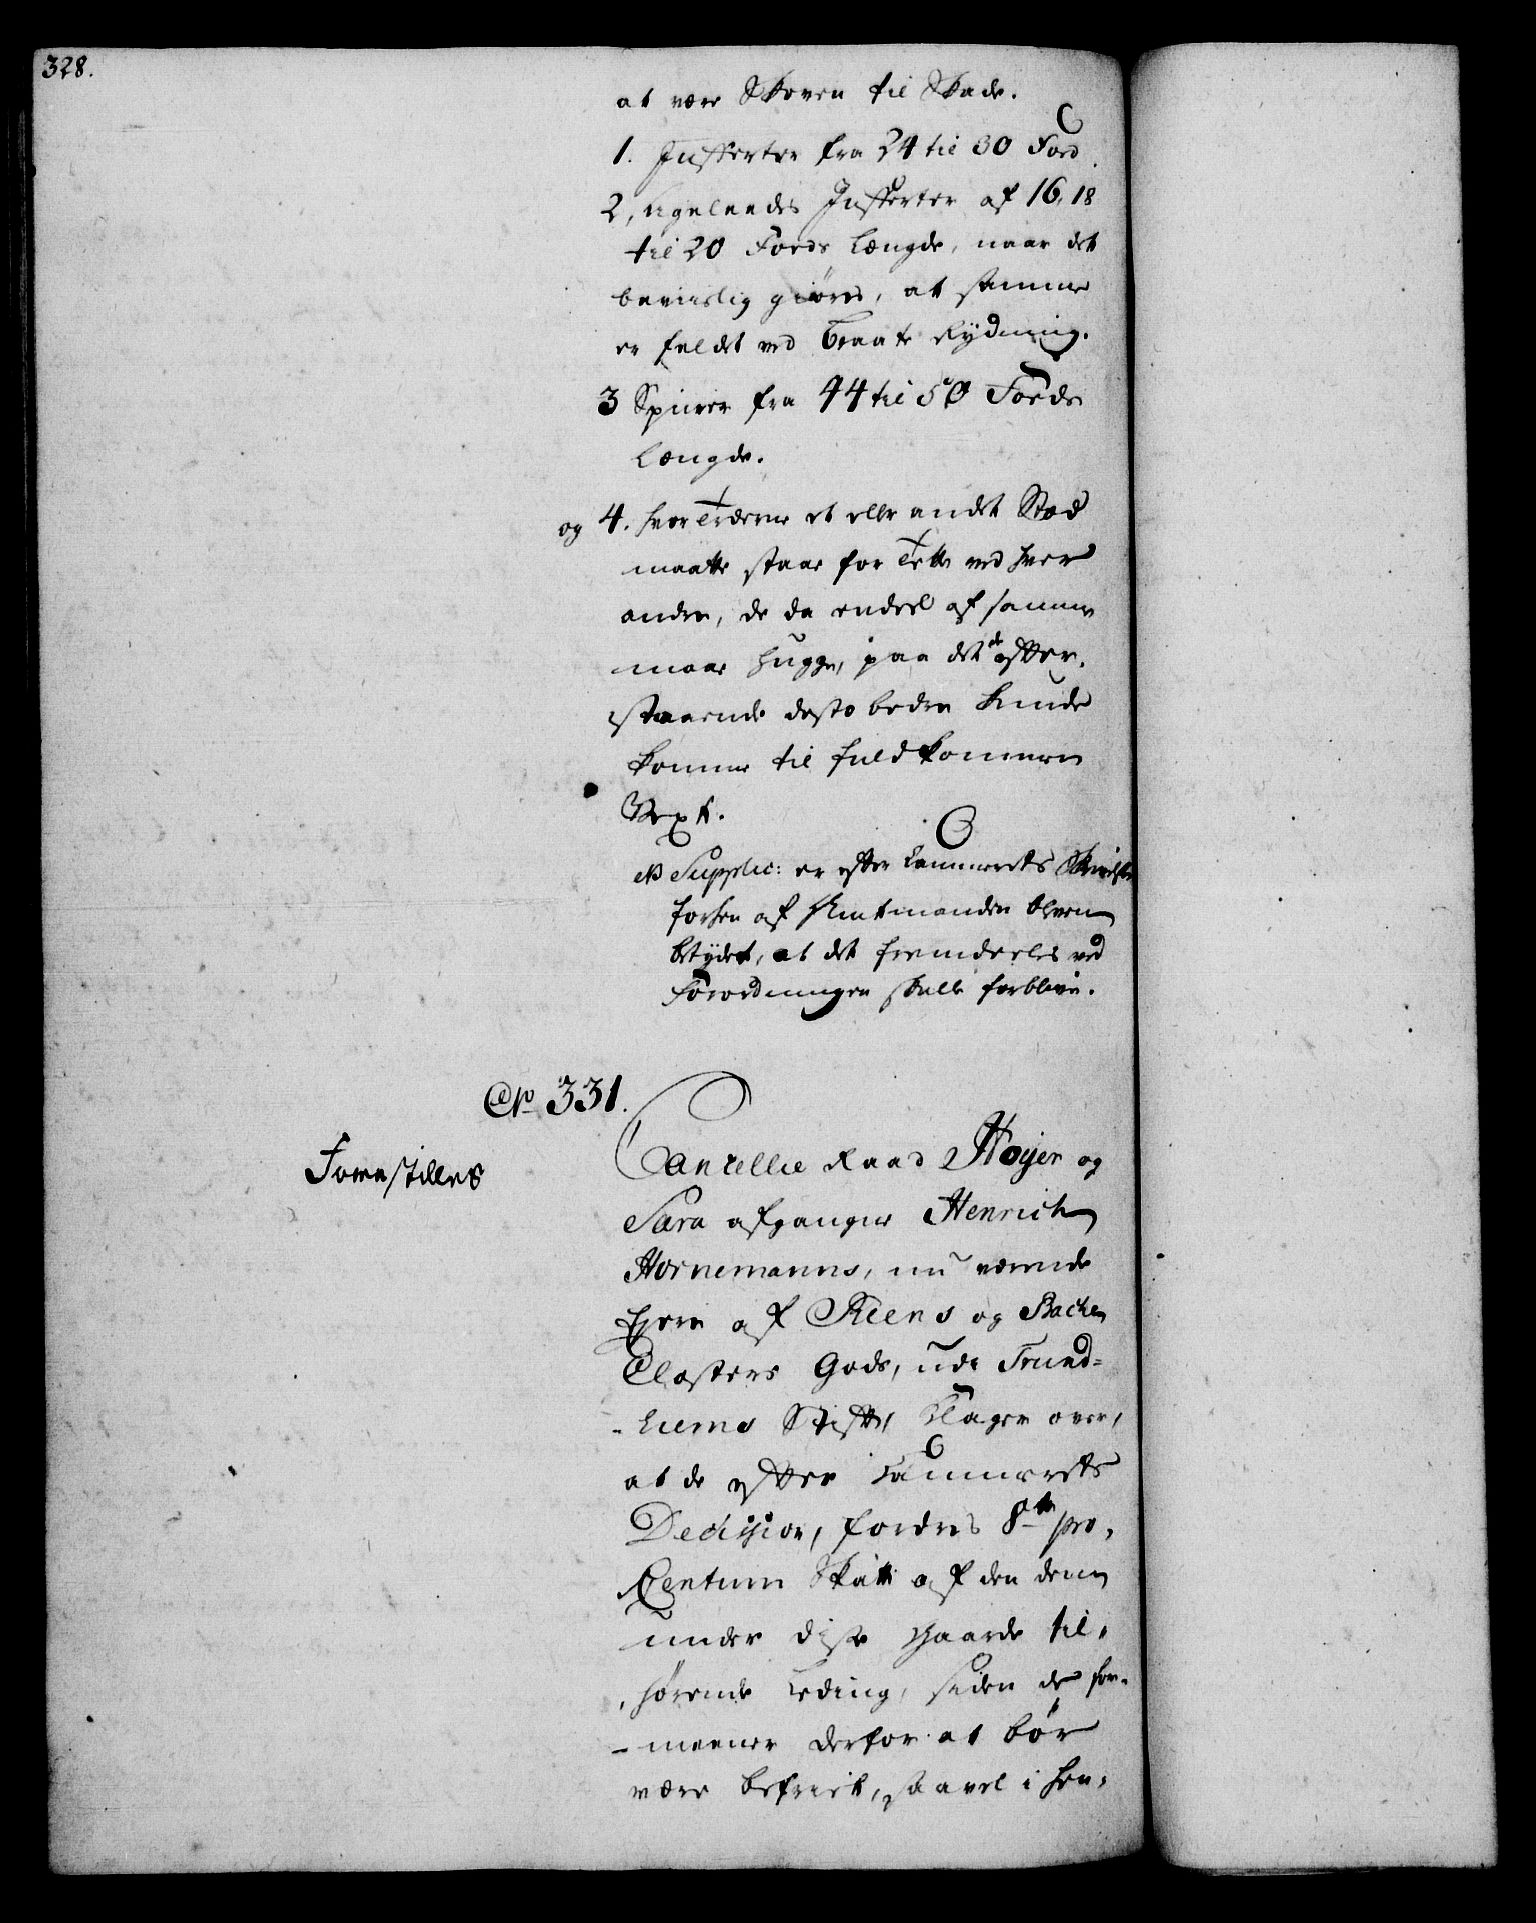 328.
at være Skoven til Skade.
1. Jufferter fra 24 til 30 Fod.
2, ligeleedes Jufferter af 16, 18
til 20 Fods Længde, naar det
beviislig giøres, at samme
er feldet ved Braate Rydning.
3 Spirer fra 44 til 50 Fods
Længde.
og 4. hvor Træerne et eller andet Stæd
maatte staae for Tætt ved hver
andre, de da endeel af samme
maae hugge, paa det de efter-
staaende desto bedre kunde
komme til fuldkommen
Vext.
NB Supplic: er efter Cammerets Skrivelse
forhen af Amtmanden bleven
betydet, at det fremdeeles ved
Forordningen skulle forblive.
No 331.
Forestilles
Cancellie Raad Høyer og
Sara afgangne Henrich
Hornemanns, nu værende
Ejere af Reens og Backe
Closters Gods, udi Trund-
-hiems Stift, klager over,
at de efter Cammerets
Decision, fordres 8te pro.
Centum Skatt af den dem
under disse Gaarde til-
-hørende Leding, siden de for-
-meener derfor at bør
være befriet, saavel i hen-